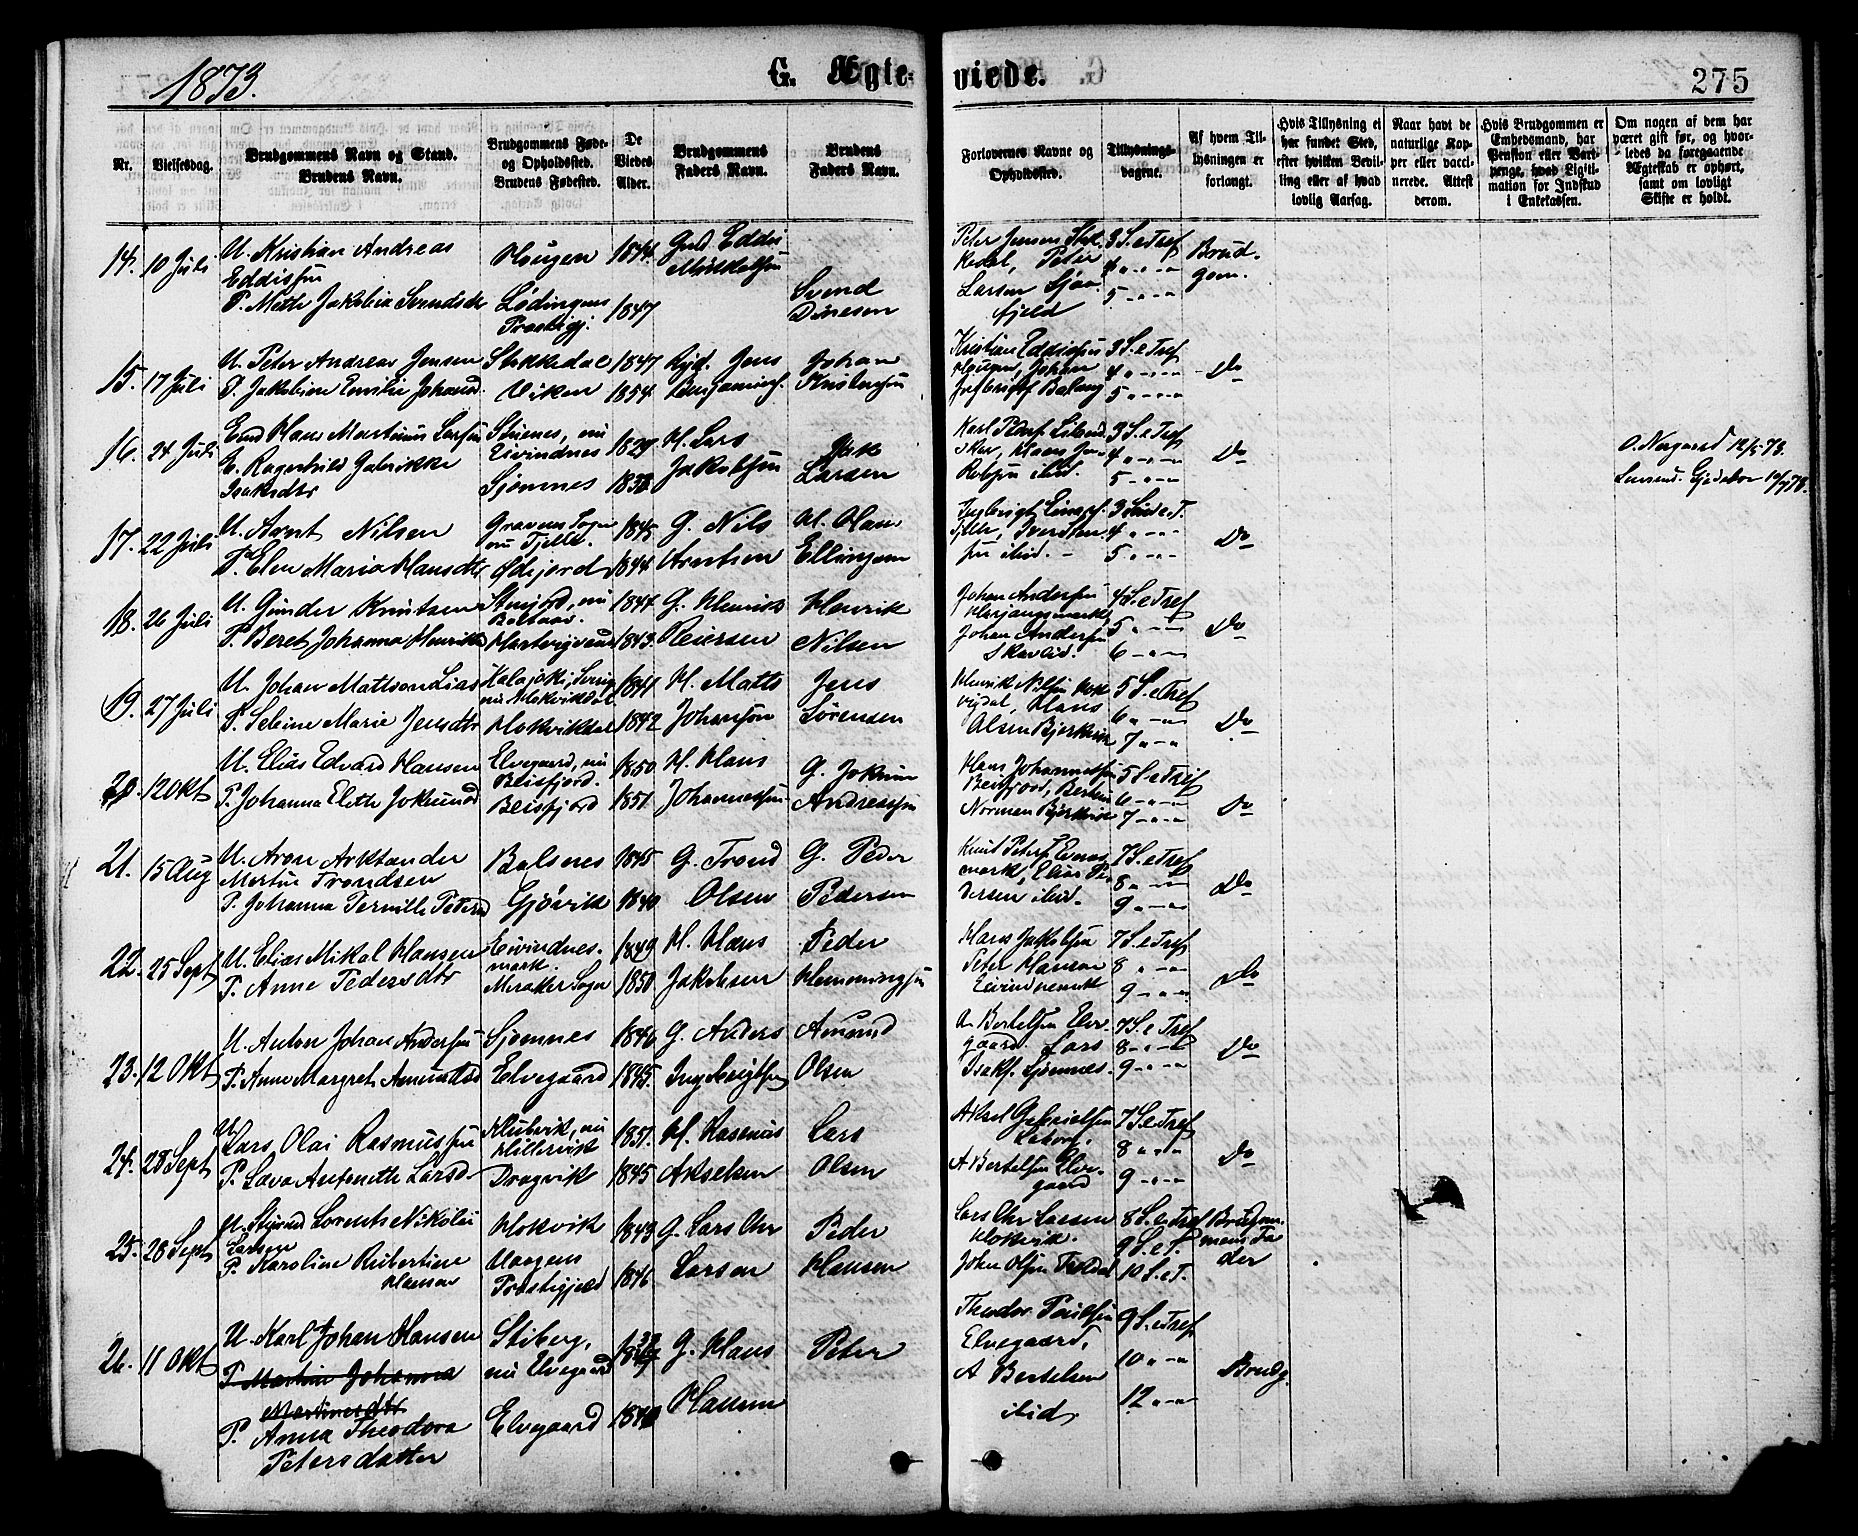 1873.
G. Ægte-
viede.
275
Nr.
Vielsesdag.
Brudgommens Navn og Stand.
Brudens Navn.
Brudgommens Føde-
og Opholdssted.
Brudens Fødested.
De
Viedes
Alder.
Brudgommens
Faders Navn.
Brudens
Faders Navn.
Forlovernes Navne og
Opholdssted.
Tillysnings-
dagene.
Af hvem Til-
lysningen er
forlangt.
Hvis Tillysning ei
har fundet Sted,
efter hvilken Bevil-
ling eller af hvad
lovlig Aarsag.
Naar havt de
naturlige Kop-
per eller vacci-
nerede. Attest
derom.
Hvis Brudgommen er
Embedsmand, har
Pension eller Vart-
penge, hvad Ligiti-
mation for Indskud
i Enkekassen.
Om nogen af dem har
været gift før, og hvor-
ledes da foregaaende
Ægteskab er ophørt,
samt om lovligt
Skifte er holdt.
14. 10 Juli
U. Kristian Andreas
Eddissen
P. Mette Jakobia Svendsdr
Haugen
Lødingens
Præstegj.
1844
1847
Gmd. Eddis
Mikkelsen
Svend
Dinesen
Peter Jensen Stok-
kedal, Peter
Larsen Sjaa-
fjeld
3 S. e Tref
4 " - " - "
5 - " - "
Brud-
gom.
15. 17 Juli
U. Peter Andreas Jensen
P. Jakobine Emilie Johansd.
Stokkedal
Viken
1847
1854
Ryd. Jens
Benjaminsf.
Johan
Kristian Eddissen
Haugen, Johan
3 S. e Tref
4 " - " - "
5 - " - "
Do
16. 24 Juli
Emd Hans Martinus Larsen
E. Ragnhild Gabrikke
Isaksdtr
Stunes, nu
Eivindnes
Sjømnes
1829
H. Lars
Jakobsen
Isak
Larsen
3 S. e Tref
4 - " - "
5 - " - "
Do
O. Norgaard 12/5 78.
17. 22 Juli
U. Arnt Nilsen
P. Elen Maria Hansdtr
Gravens Sogn
nu Fjelle.
Ødejord
1845
1844
G. Nils
Arntsen
H. Hans
Ellingsen
3 S. e T.
4 " - " - "
5 " - " - "
Do
18. 26 Juli
U. Gunder Knutsen
P. Beret Johanna Henriksd
1844
1843.
G. Henrik
Reiersen
Henrik
Nilsen
Johan Andersen
Harjangsmarken,
Johan Andersen
Skavlid.
4 S. e Tref
5 " - " - "
6 - " - "
Do
19. 27 Juli
U. Johan Mattson Lias
P. Seline Marie Jensdtr
Kalajoki, Sverig
nu Hokvikdal
Hokvikdal
1844
1842
H. Matts
Johansen
Jens
Sørensen
Henrik Nilsen Hok-
vigdal, Hans
Olsen Bjerkvik
5 S. e Tref
6 " - " - "
7 " - " - "
Do
20. 12 Okt
U. Elias Edvard Hansen
P. Johanna Eleth Jokumsd
Elvegaard, nu
Beisfjord.
Beisfjord
1850
1851
H. Hans
Johannessen
G. Jokum
Andreassen
Hans Johannessen
Beisfjord, Bertin
Normen Bjerkvik
5 S. e Tref
6 - " - "
7 - " - "
Do
21. 15 Aug
U. Aron Arktander
Martin Trondsen
P. Johanna Pernille Pedersd
Balsnes
Gjøvik
1845
1840
G. Trond
Olsen
G. Peder
Pedersen
Knut Peters Evenes
mark, Elias Pe-
dersen ibid.
7 S. e Tref
8 " - " - "
9 " - " - "
Do
22. 25 Sept
U. Elias Mikal Hansen
P. Anne Pedersdtr
Eivindnes-
mark.
Meraker Sogn
1849
1850
H. Hans
Jakobsen
Peder
Hemmingsen
Hans Jakobsen
Peter Hansen
Eivindnesmark
7 S. e Tref
8 " - " - "
9 - " - "
Do
23. 12 Okt
U. Anton Johan Andersen
P. Anne Margret Amundsd
Sjomnes
Elvegaard
1846
1845
G. Anders
Ingebrigtsen
Amund
Olsen
A. Bertelsen Elve-
gaard. Lars
Isaks. Sjømnes.
7 S. e Tref
8 - " - "
9 - " - "
Do
24. 28 Sept
U.
Lars Olai Rasmussen
P. Lava Antonette Larsd.
Klubvik, nu
Lillevik
Dragvik
1851.
1845
H. Rasmus
Akselsen
Lars
Olsen
Aksel Gabrielsen
A Bertelsen Elve-
gaard
7 S. e Tref
8 " - " - "
9 - " - "
Do
25. 28 Sept
U. Styrud Lorents Nikolai
Larsen
P. Karoline Rubertine
Hansen
Hokvik
Præstegjæld
1843
1846
G. Lars Chr
Larsen
Peder
Hansen
Lars Chr Larsen
Hokvik.
Johan Olsen
8 S. e Tref
9 S. e T.
10 S. e T.
Brudgom-
mens Fa-
der
26. 11 Okt
U. Karl Johan Hansen
P. Martine Johanna
Martinesdtr
P. Anna Theodora
Petersdatter
Stiberg,
nu Elvegaard
Elvegaard
G. Hans
Hansen
Peter
Theodor Paulsen
Elvegaard,
A Bertelsen
ibid
9 S. e Tref
10 " - " - "
12 " - " - "
Brudg.